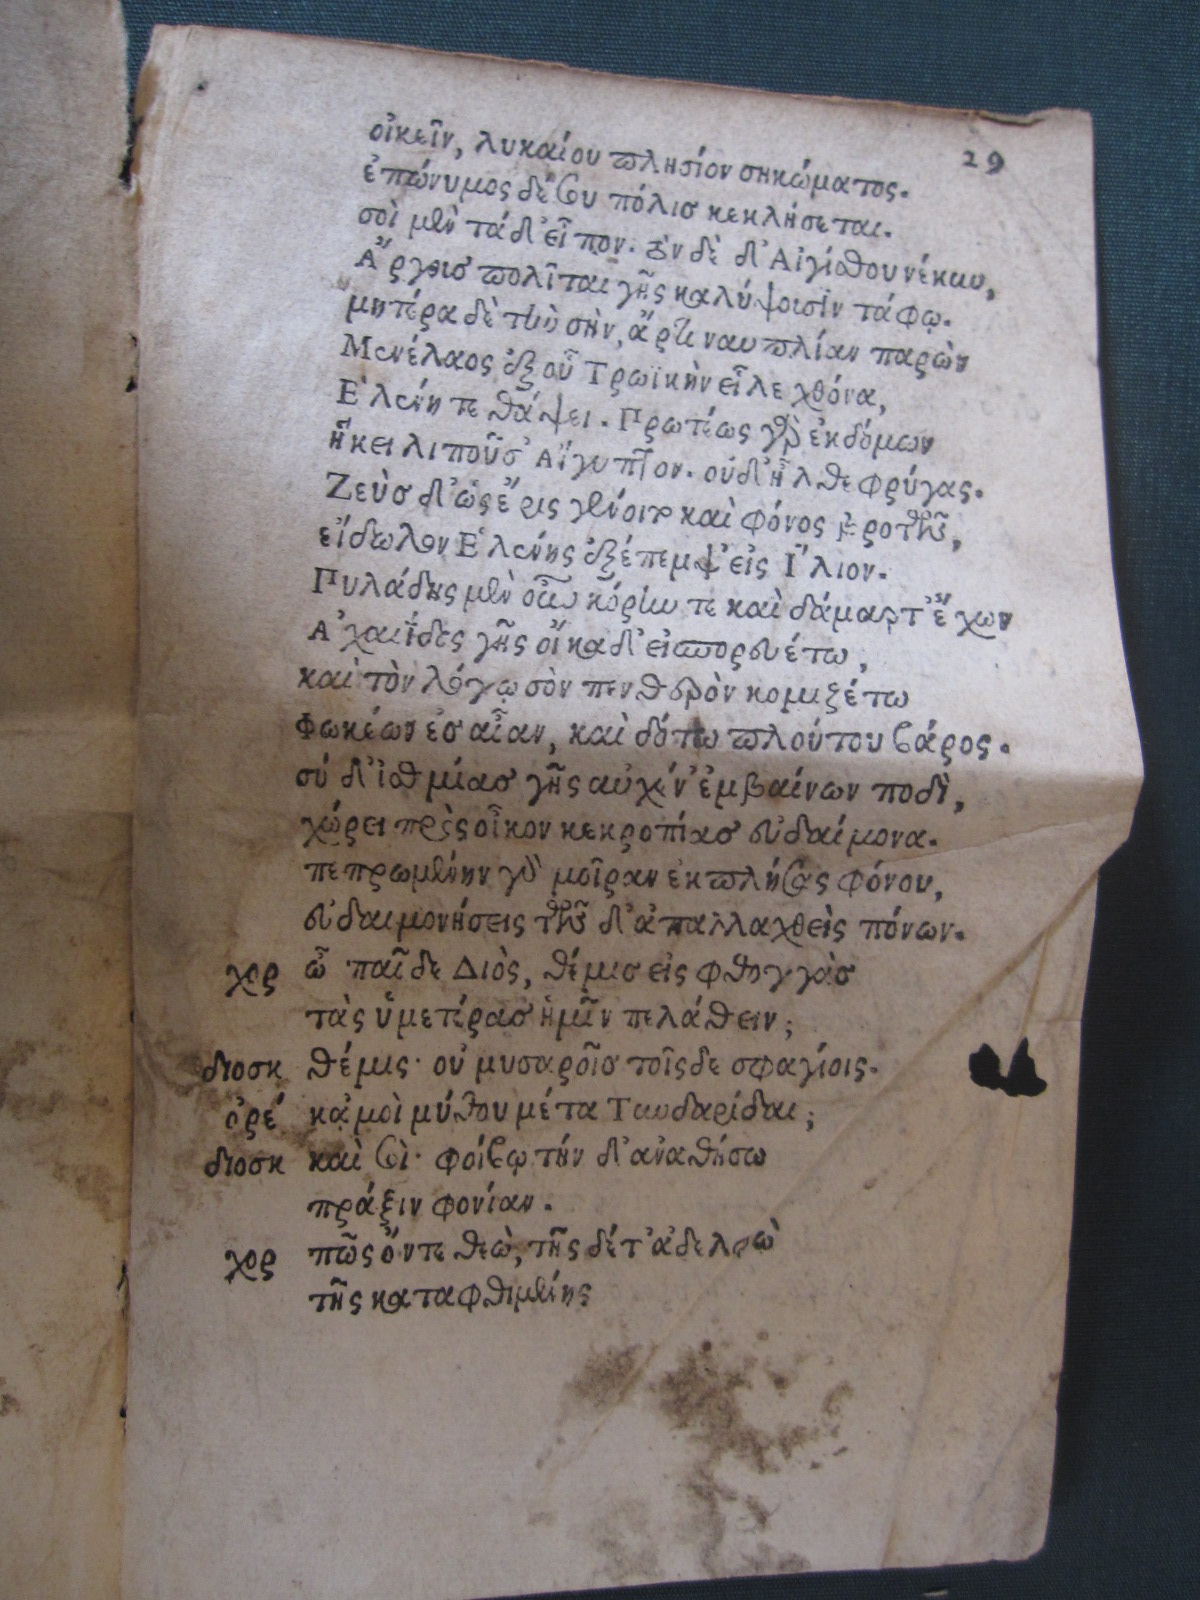 29
οἰκεῖν, λυκαίου πλησίον σηκώματος.
ἐπώνυμος δέ σου πόλισ κεκλήσεται.
σοὶ μὲν τά δ' εἶπον. τὸν δὲ δ' Αἰγίσθου νέκυν,
Ἄργεισ πολῖται γῆς καλύψουσϊν τάφῳ.
μητέρα δὲ τὴν σὴν, ἄρτι ναυπλίαν παρὼν
Μενέλαος ἐξ οὗ Τρωϊκὴν εἷλε χθόνα,
Ἑλένη τε θάψει. Πρωτέως γὰρ ἐκ δόμων
ἥκει λιποῦσ' Αἴγυπτον. οὐδ' ἦλθε φρύγας.
Ζεὺσ δ' ὡς ἔρις γένοιτο καὶ φόνος βροτῶν,
εἴδωλον Ἑλένης ἐξέπεμψ' εἰς Ἴλιον.
Πυλάδης μὲν οὖν κόρην τε καὶ δάμαρτ' ἔχων
Ἀχαιΐδες γῆς οἴκαδ' εἰσπορευέτω,
καὶ τὸν λόγῳ σὸν πενθερὸν κομιζέτω
Φωκέων ἐσ αἶαν, καὶ δότω πλούτου βάρος.
σύ δ' ἰσθμίασ γῆς αὐχέν' ἐμβαίνων ποδὶ,
χώρει πρὸς οἶκον κεκροπίασ εὐδαίμονα.
πεπρωμένην γὰρ μοῖραν ἐκπλήσας φόνου,
εὐδαιμονήσεις τῶν δ' ἀπαλλαχθεὶς πόνων.
χορ ὦ παῖδε Διὸς, θέμισ εἰς φθογγὰσ
τὰς ὑμετέρασ ἡμῖν πελάθειν;
διοσκ θέμις· οὐ μυσαροῖσ τοῖς δε σφαγίοις.
ὀρέ κᾀμοὶ μύθου μέτα Τυνδαρίδαι;
διοσκ καὶ σοὶ· φοίβῳ τήν δ' ἀναθήσω
πράξιν φονίαν.
χορ πῶς ὄντε θεὼ, τῆς δέ τ' ἀδελφὼ
τῆς καταφθιμένης